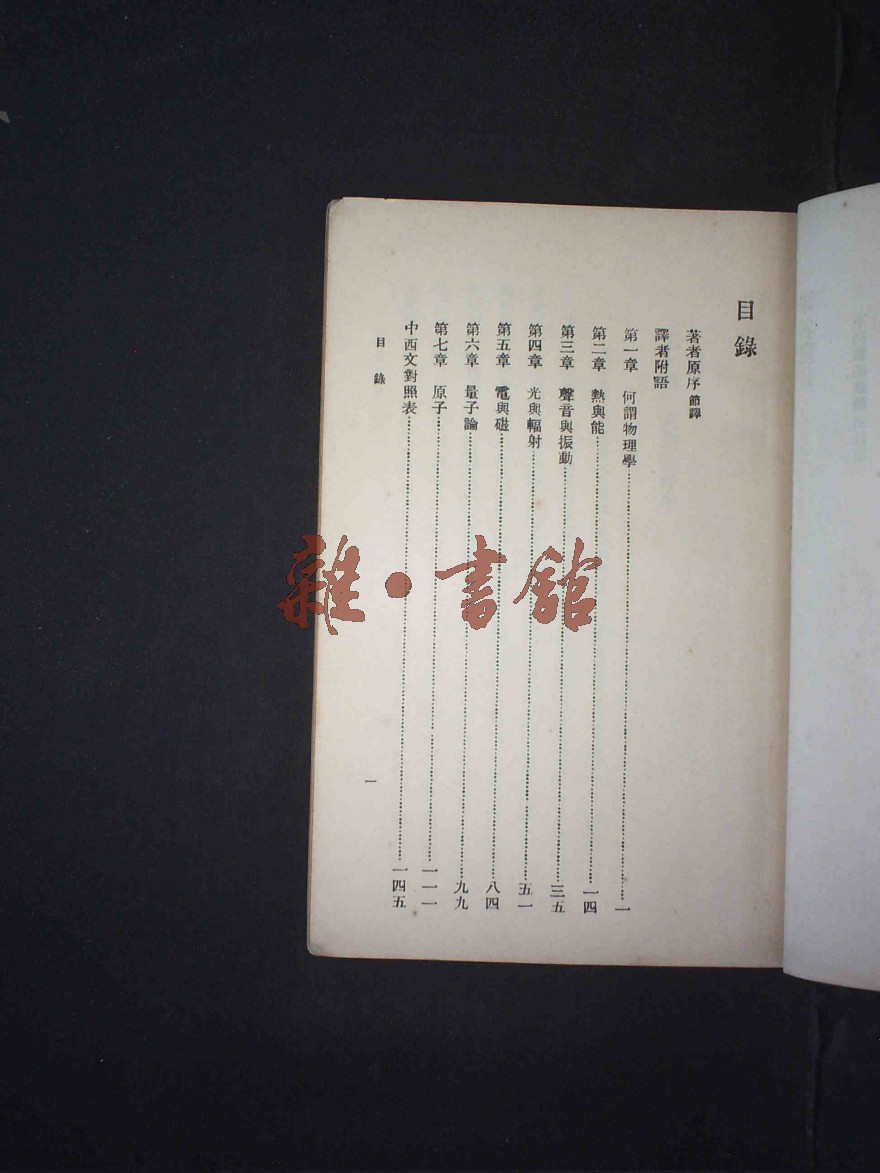 目錄
著者原序 節譯
譯者附語
第一章 何謂物理學……一
第二章 熱與能……一四
第三章 聲音與振動……三五
第四章 光與輻射……五一
第五章 電與磁……八四
第六章 量子論……九九
第七章 原子……一一一
中西文對照表……一四五
目錄
一
雜·書館